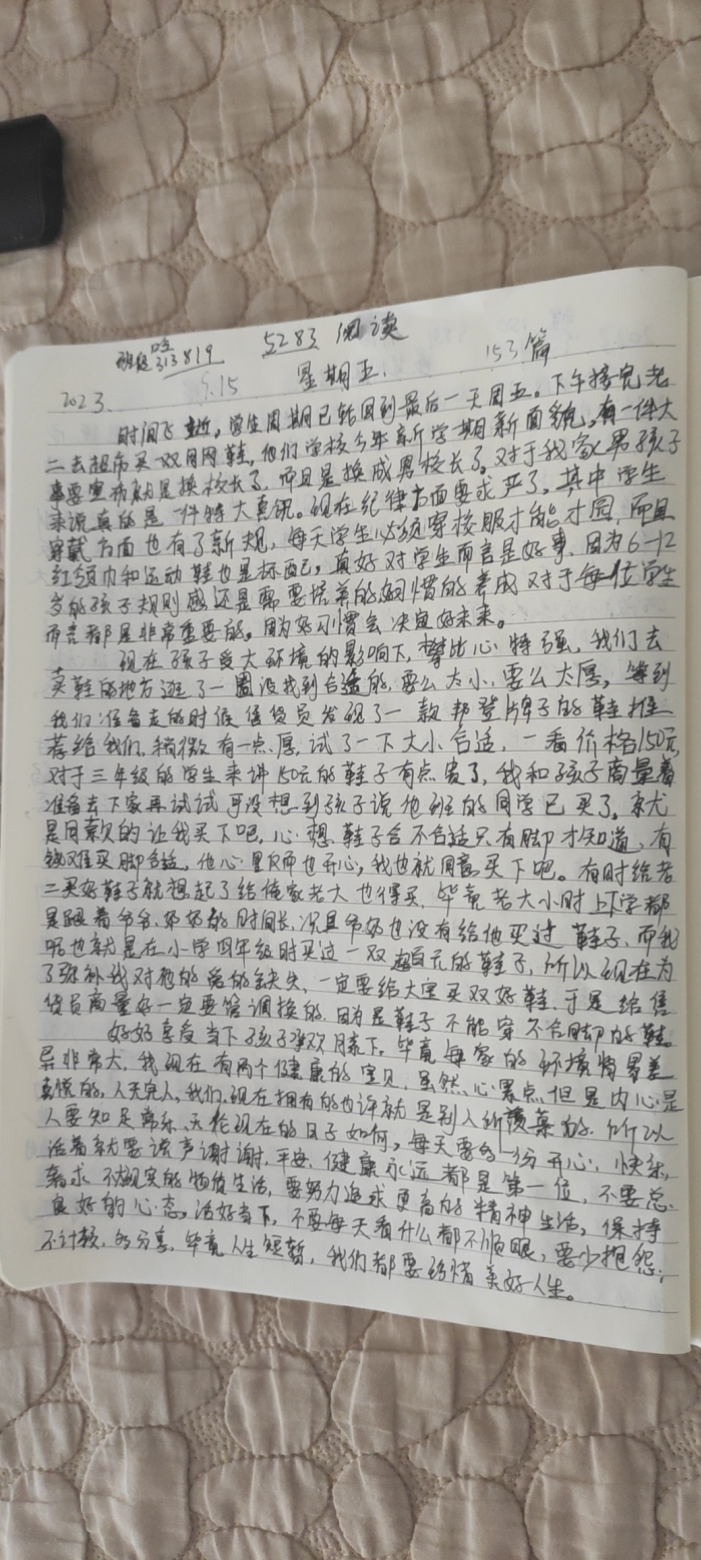 5283 阅读
班级 313819
153篇
2023. 9.15 星期五.
时间飞逝, 学生周期已轮回到最后一天周五。下午接完老
二去超市买一双网鞋, 他们学校今年新学期新面貌, 有一件大
事要宣布就是换校长了, 而且是换成男校长了。对于我家男孩子
来说真的是一件特大喜讯。现在纪律方面要求严了。其中学生
穿戴方面也有了新规, 每天学生必须穿校服才能才园, 而且
红领巾和运动鞋也是标配, 真好对学生而言是好事, 因为6-12
岁的孩子规则感还是需要培养的好习惯的养成对于每位学生
而言都是非常重要的。因为好习惯会决定好未来。
现在孩子受大环境的影响下, 攀比心特强, 我们去
买鞋的地方逛了一圈没找到合适的, 要么太小, 要么太厚, 等到
我们准备走的时候售货员发现了一款邦登牌子的鞋推
荐给我们, 稍微有一点厚, 试了一下大小合适, 一看价格150元,
对于三年级的学生来讲150元的鞋子有点贵了, 我和孩子商量着
准备去下家再试试可没想到孩子说他班的同学已买了, 就
是同款的让我买下吧, 心想鞋子合不合适只有脚才知道, 有
钱难买脚合适, 他心里也开心, 我也就同意买下吧。有时给老
二买好鞋子就想起了给俺家老大也得买, 毕竟老大小时上下学都
是跟着爷爷、奶奶的时间长, 况且爷奶也没有给他买过鞋子, 而我
呢也就是在小学四年级时买过一双超百元的鞋子, 所以现在为
了弥补我对他的爱的缺失, 一定要给大宝买双好鞋, 于是给售
货员商量好一定要管调换的, 因为是鞋子不能穿不合脚的鞋。
好好享受当下孩子承欢膝下。毕竟每家的环境将界差
异非常大, 我现在有两个健康的宝贝, 虽然心累点, 但是内心是
的, 人无完人, 我们现在拥有的也许就是别人所羡慕的, 所以
人要知足常乐, 无论现在的日子如何, 每天要多一份开心, 快乐,
活着就要说声谢谢, 平安、健康永远都是第一位, 不要总
奢求不现实的物质生活, 要努力追求更高的精神生活, 保持
良好的心态, 活好当下, 不要每天看什么都不顺眼, 要少抱怨,
不计较, 多分享, 毕竟人生短暂, 我们都要珍惜美好人生。